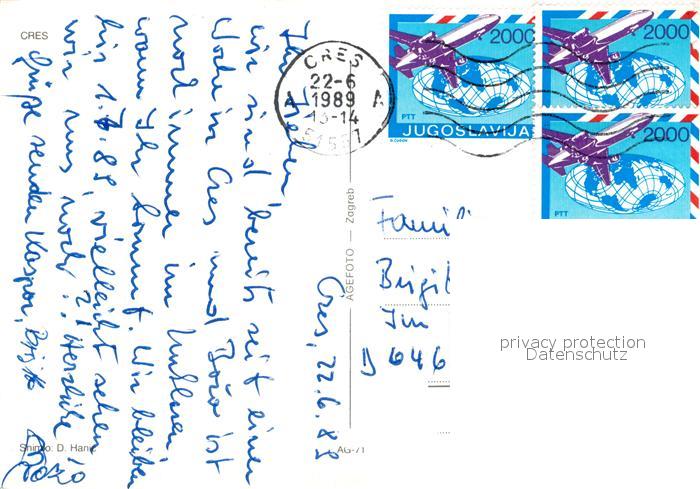 CRES
Cres, 22.6.89
Ihr Lieben
wir sind bereits seit einer
Woche in Cres und Božo ist
noch immer im
wann Ihr kommt. Wir bleiben
bis 1.7.89, vielleicht sehen
wir uns noch? Herzliche
Grüße senden Kaspar, Brigitte
Božo
Snimio: D. Hanić
AG-71
AGEFOTO — Zagreb
CRES
22-6
1989
A A
13-14
51557
2000
PTT
JUGOSLAVIJA
2000
2000
PTT
Famili
Birgit
Im
D 646
privacy protection
Datenschutz